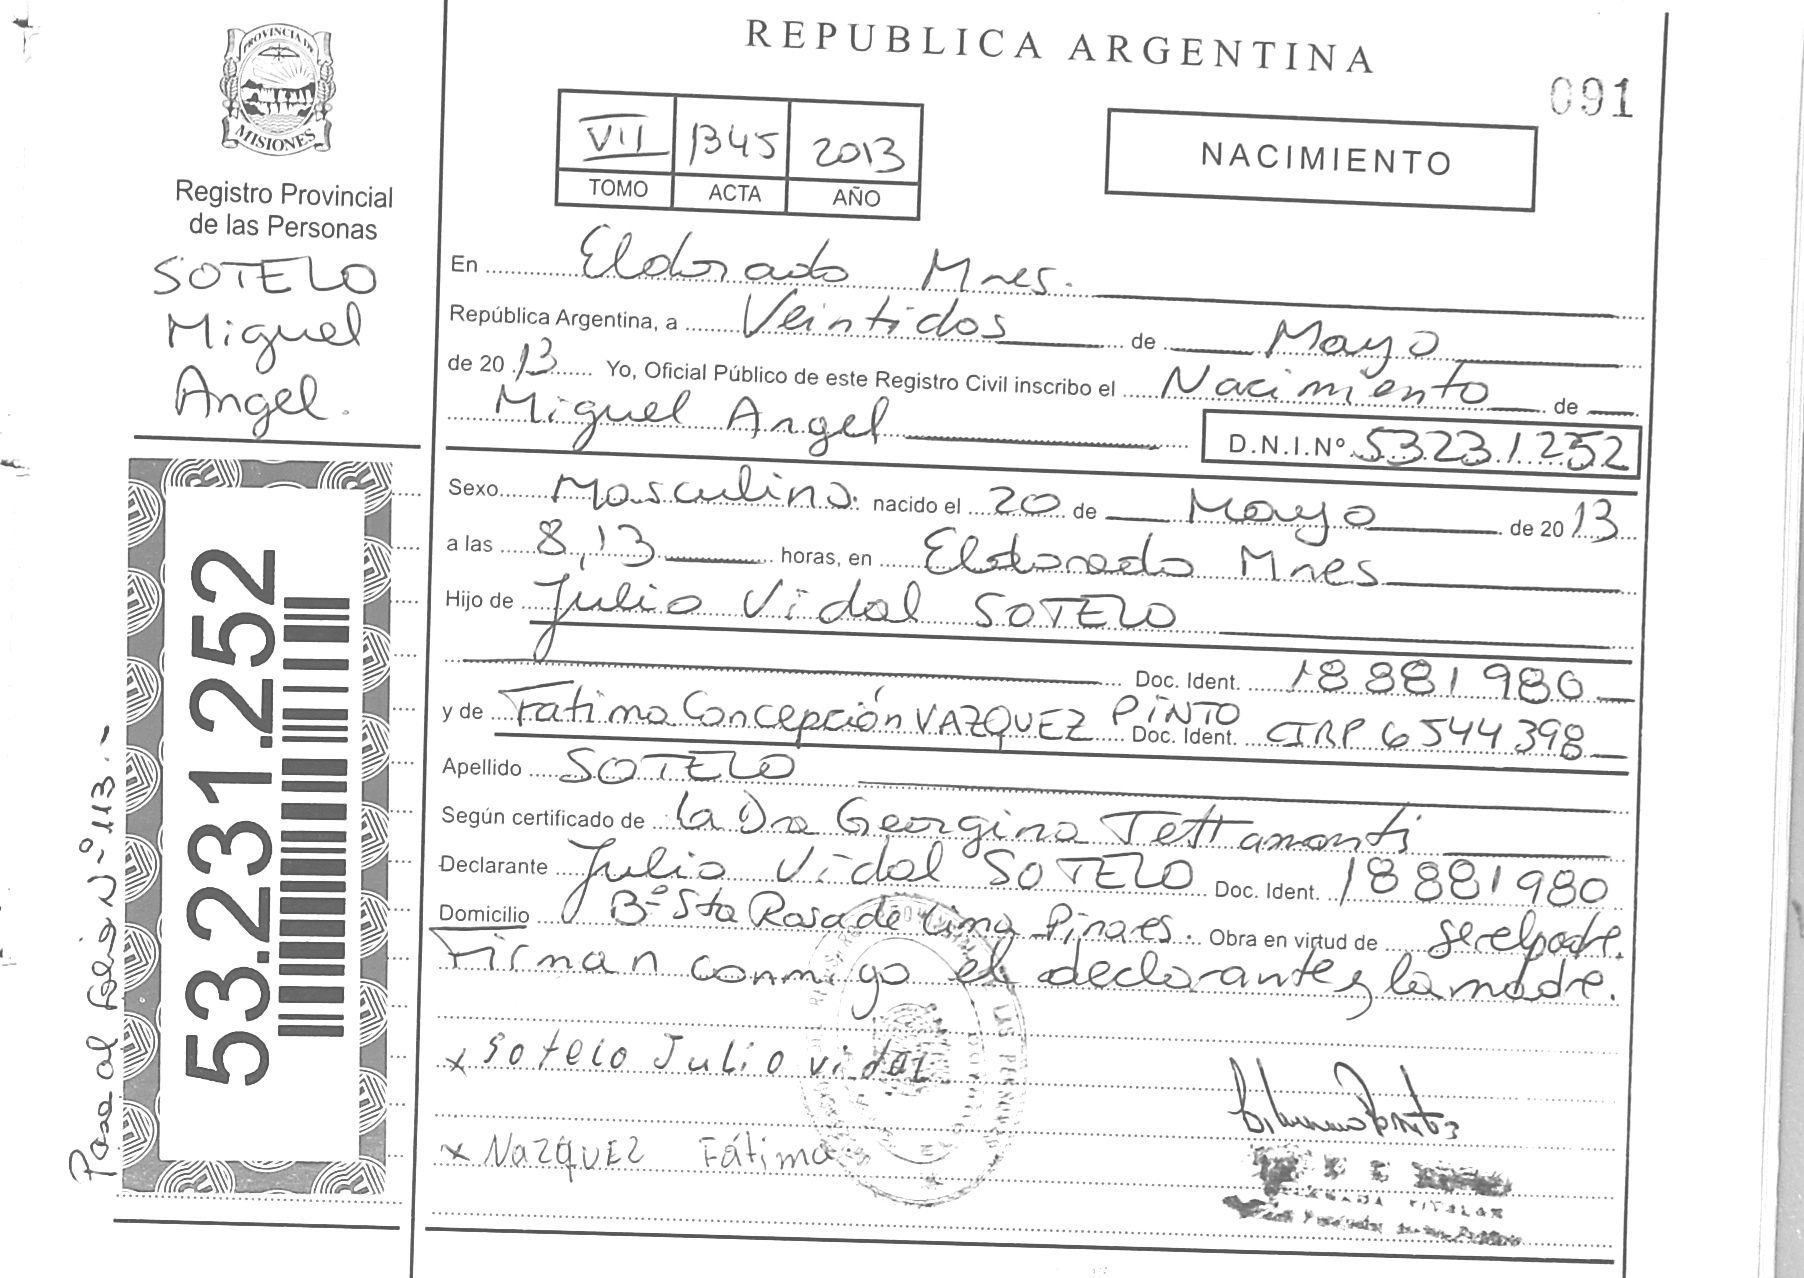 REPUBLICA ARGENTINA
091
PROVINCIA DE
MISIONES
Registro Provincial
de las Personas
SOTELO
Miguel
Angel.
VII 1345 2013
TOMO ACTA AÑO
NACIMIENTO
En Eldorado Mnes.
República Argentina, a Veintidos de Mayo
de 2013 Yo, Oficial Público de este Registro Civil inscribo el Nacimiento de
Miguel Angel D.N.I.Nº 53231252
Sexo Masculino. nacido el 20 de Mayo de 2013
a las 8,13 horas, en Eldorado Mnes
Hijo de Julio Vidal SOTELO
Doc. Ident. 18881980
y de Fatima Concepción VAZQUEZ PINTO Doc. Ident. CIRP 6544398
Apellido SOTELO
Según certificado de la Dra Georgina Tettamonti
Declarante Julio Vidal SOTELO Doc. Ident. 18881980
Domicilio Bº Sta Rosa de Lima Pinares. Obra en virtud de ser el padre.
Firman conmigo el declarante y la madre.
x Sotelo Julio vidal
x VazQUEZ Fátima
53.231.252
Pase al folio Nº 113.-